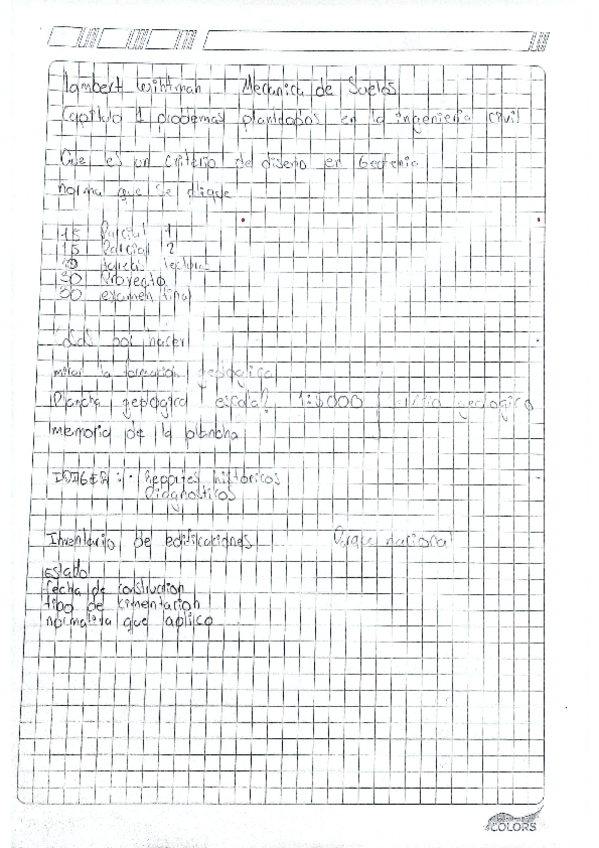 Lambert Wihtman Mecanica de Suelos
Capitulo 1 problemas planteados en la ingenieria civil
Que es un criterio de diseño en Geotenia
norma que se aplique
15 Parcial 1
15 Parcial 2
tareas lecturas
30 Proyecto
examen final
por hacer
mirar la formacion geologica
Plancha geologica escala? 1:5000 geologico
memoria de la plancha
Reportes historicos
Diagnosticos
Inventario de edificaciones Parque nacional
Estado
fecha de construction
tipo de cimentacion
normativa que aplico
COLORS